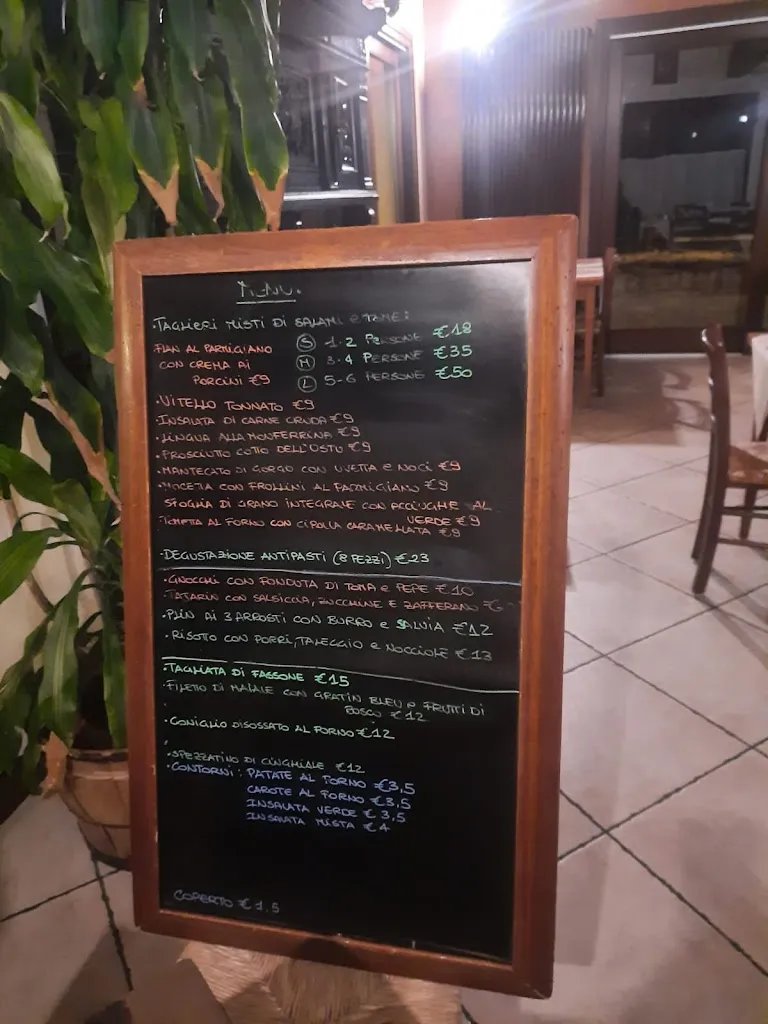 MENU.
·TAGLIERI MISTI DI SALAMI e TOME:
FLAN AL PARMIGIANO
CON CREMA AI
PORCINI €9
(S) 1-2 PERSONE €18
(M) 3-4 PERSONE €35
(L) 5-6 PERSONE €50
·VITELLO TONNATO €9
·INSALATA DI CARNE CRUDA €9
·LINGUA ALLA MONFERRINA €9
·PROSCIUTTO COTTO DELL'OSTU €9
·MANTECATO DI GORGO CON UVETTA e NOCI €9
·MOCETTA CON FROLLINI AL PARMIGIANO €9
SFOGLIA DI GRANO INTEGRALE CON ACCIUGHE AL
VERDE €9
·TOMETTA AL FORNO CON CIPOLLA CARAMELLATA €9
·DEGUSTAZIONE ANTIPASTI (8 PEZZI) €23
·GNOCCHI CON FONDUTA DI TOMA e PEPE €10
·TAJARIN CON SALSICCIA, ZUCCHINE E ZAFFERANO €
·PLIN AI 3 ARROSTI CON BURRO e SALVIA €12
·RISOTTO CON PORRI, TALEGGIO e NOCCIOLE €13
·TAGLIATA DI FASSONE €15
·FILETTO DI MAIALE CON GRATIN BLEU e FRUTTI DI
BOSCO €12
·CONIGLIO DISOSSATO AL FORNO €12
·SPEZZATINO DI CINGHIALE €12
·CONTORNI: PATATE AL FORNO €3,5
CAROTE AL FORNO €3,5
INSALATA VERDE € 3,5
INSALATA MISTA € 4
COPERTO € 1.5